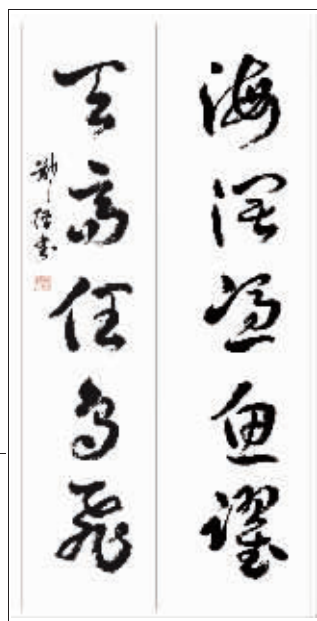 海阔凭鱼跃
天高任鸟飞